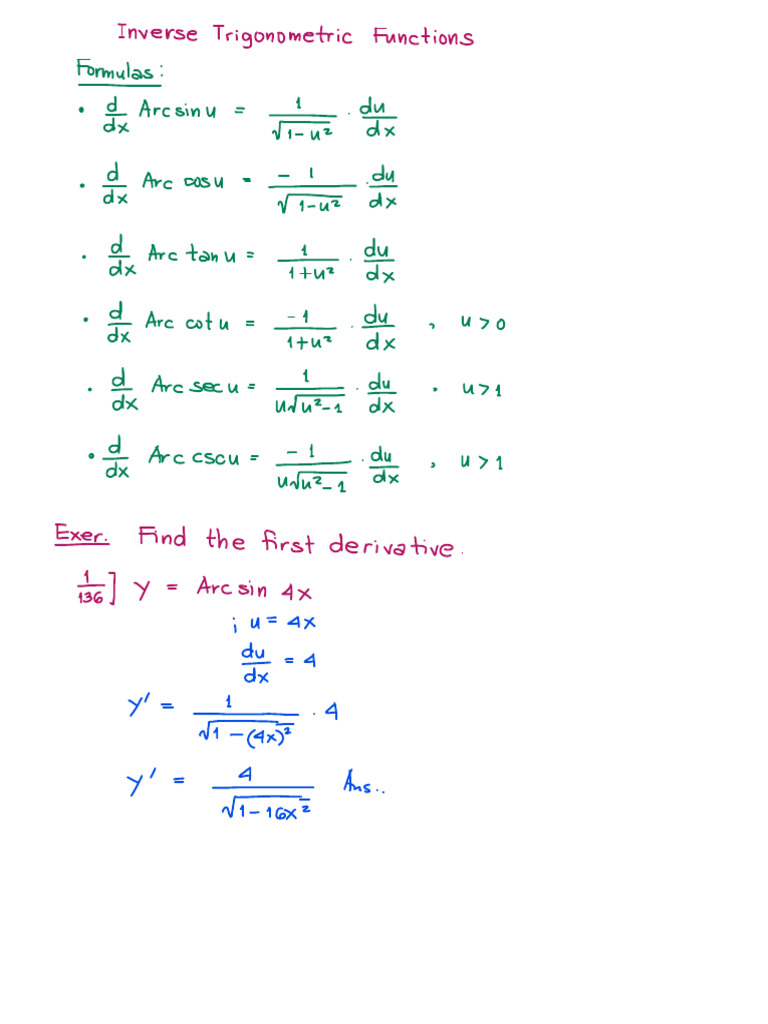 Inverse Trigonometric Functions
Formulas:
• d/dx Arcsin u = 1/√(1-u²) · du/dx
• d/dx Arc cos u = -1/√(1-u²) · du/dx
• d/dx Arc tan u = 1/(1+u²) · du/dx
• d/dx Arc cot u = -1/(1+u²) · du/dx , u > 0
• d/dx Arc sec u = 1/(u√(u²-1)) · du/dx , u > 1
• d/dx Arc csc u = -1/(u√(u²-1)) · du/dx , u > 1
Exer. Find the first derivative.
1/136] y = Arcsin 4x
; u = 4x
du/dx = 4
y' = 1/√(1-(4x)²) · 4
y' = 4/√(1-16x²) Ans..